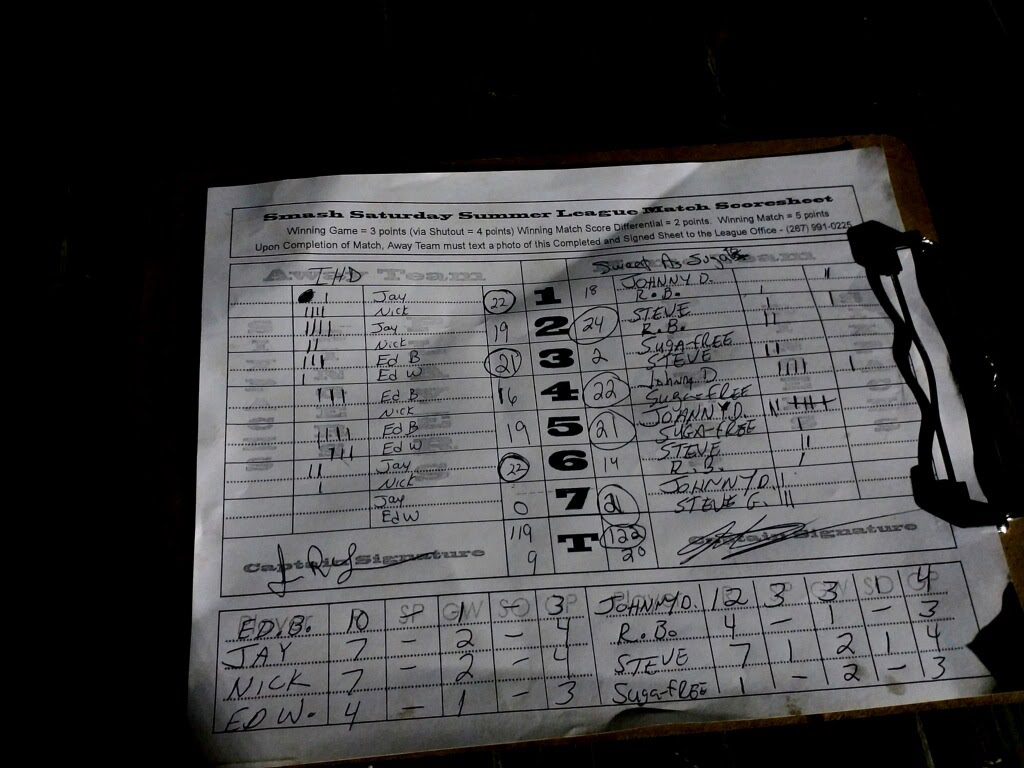 Smash Saturday Summer League Match Scoresheet
Winning Game = 3 points (via Shutout = 4 points) Winning Match Score Differential = 2 points. Winning Match = 5 points
Upon Completion of Match, Away Team must text a photo of this Completed and Signed Sheet to the League Office - (267) 991-0225
Away Team
THD
Sweet As Suga
Jay 22 1 18 JOHNNY D.
Nick R.B.
Jay 19 2 24 STEVE
Nick R.B.
Ed B 21 3 2 SUGA-FREE
Ed W STEVE
Ed B 16 4 22 Johnny D
Nick Suga-FREE
Ed B 19 5 21 JOHNNY D.
Ed W SUGA-FREE
Jay 22 6 14 STEVE
Nick R.B.
Jay 0 7 21 JOHNNY D.
Ed W STEVE G.
119 T 122
9 20
Captain Signature Captain Signature
Players SP GW SO GP
ED.B. 10 - 1 - 3 JOHNNY D. 12 3 3 1 4
JAY 7 - 2 - 4 R.B. 4 - 1 - 3
NICK 7 - 2 - 4 STEVE 7 1 2 1 4
ED W. 4 - 1 - 3 Suga-FREE 1 - 2 - 3